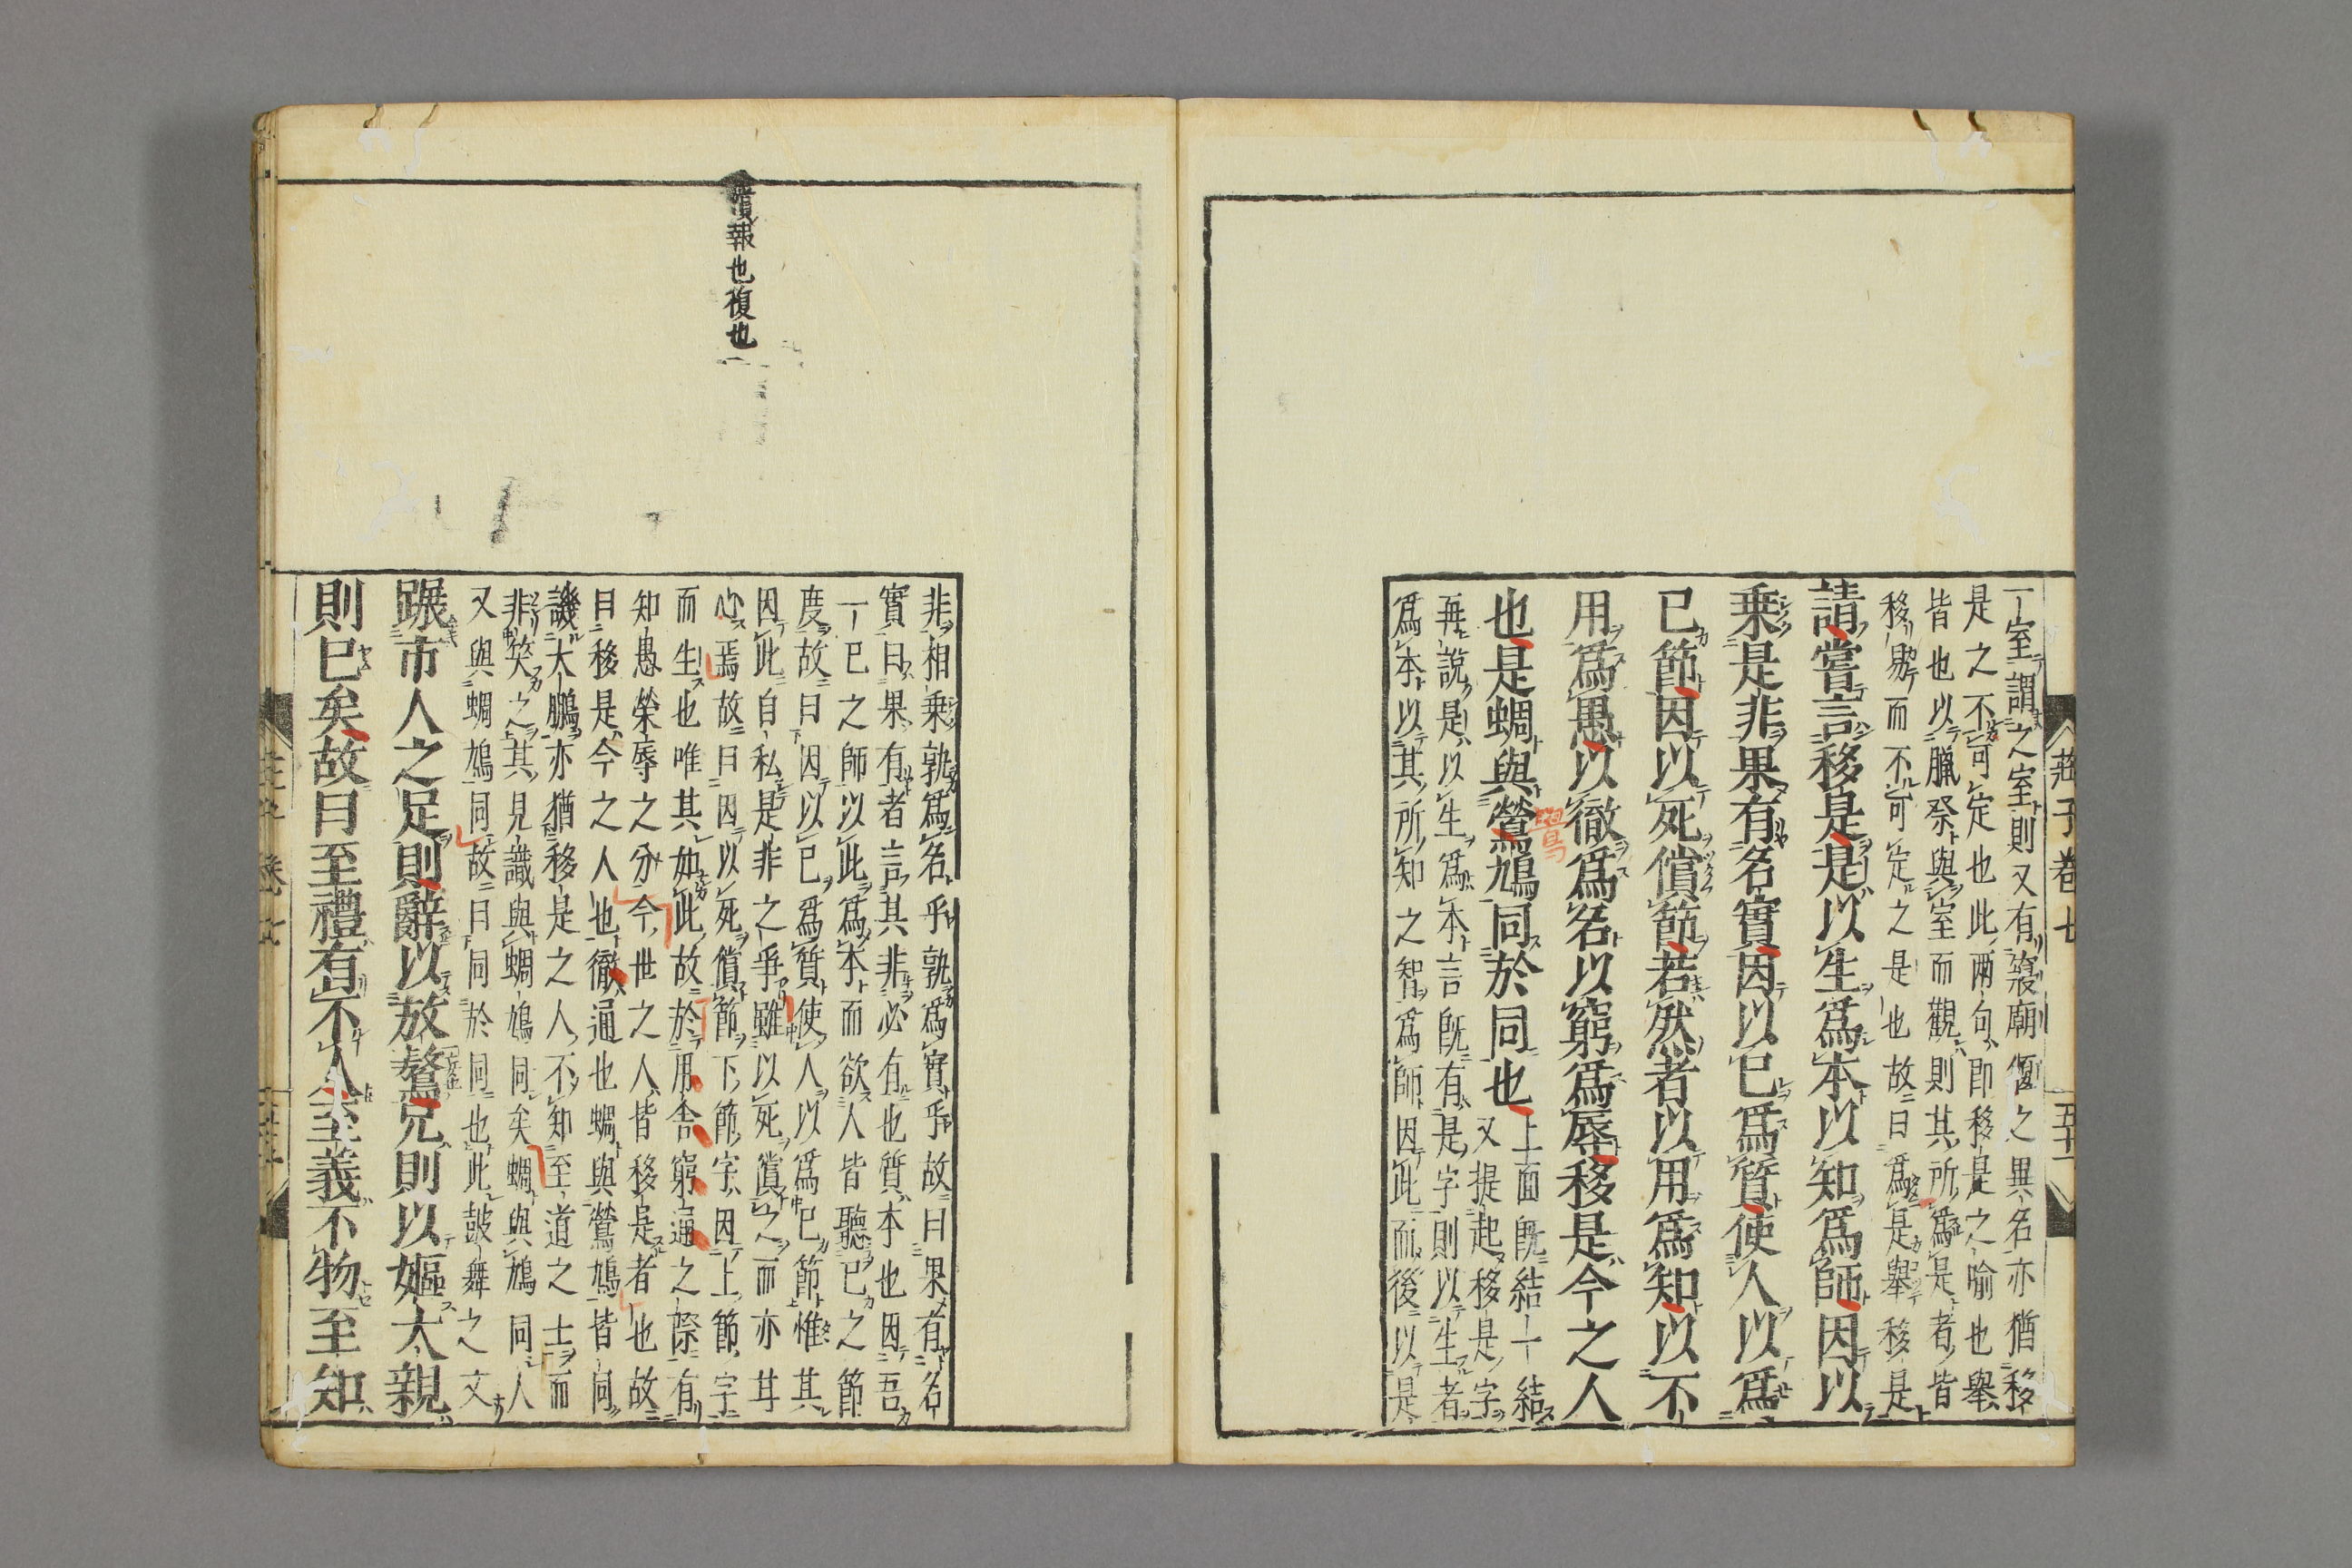 一室謂之室則又有寢廟偃之異名亦猶移
是之不可定也此兩句即移是之喻也舉
皆也以臘祭與室而觀則其所爲是者皆
移易而不可定之是也故曰爲是舉移是
請嘗言移是是以生爲本以知爲師因以
乘是非果有名實因以已爲質使人以爲
已節因以死償節若然者以用爲知以不
用爲愚以徹爲名以窮爲辱移是今之人
也是蜩與鶯鳩同於同也
上面既結一結
又提起移是字
再說是以生爲本言既有是字則以生者
爲本以其所知之智爲師因此而後以是
鷽
莊子卷七
五十一
非相乘孰爲名乎孰爲實乎故曰果有名
實曰果有者言其非必有也質本也因吾
一已之師以此爲本而欲人皆聽已之節
度故曰因以已爲質使人以爲已節惟其
因此自私是非之爭雖以死償之而亦甘
心焉故曰因以死償節下節字因上節字
而生也唯其如此故於用舍窮通之際有
知愚榮辱之分今世之人皆移是者也故
目移是今之人也徹通也蜩與鶯鳩皆同
譏大鵬亦猶移是之人不知至道之士而
非笑之其見識與蜩鳩同矣蜩與鳩同人
又與蜩鳩同故曰同於同也此鼓舞之文
蹍市人之足則辭以放驁兄則以嫗大親
則已矣故曰至禮有不人至義不物至知
償報也復也